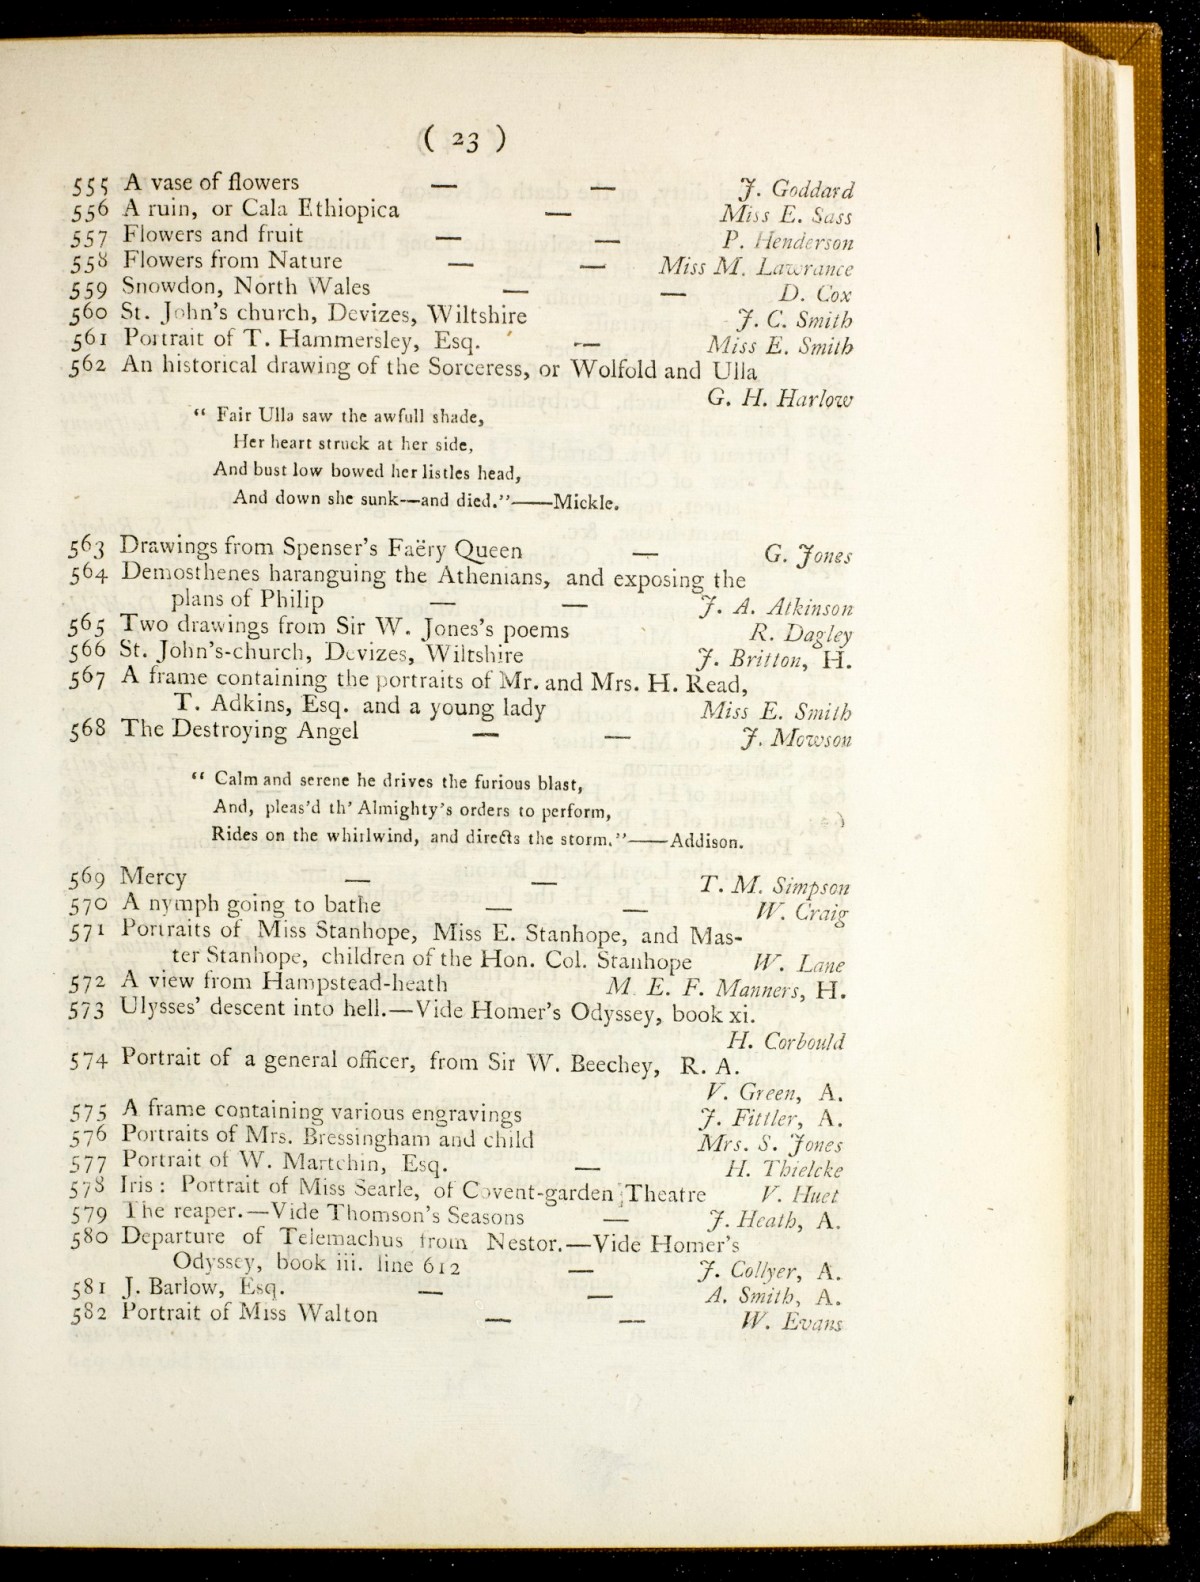 ( 23 )
555 A vase of flowers — — J. Goddard
556 A ruin, or Cala Ethiopica — Miss E. Sass
557 Flowers and fruit — — P. Henderson
558 Flowers from Nature — — Miss M. Lawrance
559 Snowdon, North Wales — — D. Cox
560 St. John's church, Devizes, Wiltshire J. C. Smith
561 Portrait of T. Hammersley, Esq. — Miss E. Smith
562 An historical drawing of the Sorceress, or Wolfold and Ulla
G. H. Harlow
“ Fair Ulla saw the awfull shade,
Her heart struck at her side,
And bust low bowed her listles head,
And down she sunk—and died.”——Mickle.
563 Drawings from Spenser's Faëry Queen — G. Jones
564 Demosthenes haranguing the Athenians, and exposing the
plans of Philip — — J. A. Atkinson
565 Two drawings from Sir W. Jones's poems R. Dagley
566 St. John's-church, Devizes, Wiltshire J. Britton, H.
567 A frame containing the portraits of Mr. and Mrs. H. Read,
T. Adkins, Esq. and a young lady Miss E. Smith
568 The Destroying Angel — — J. Mowson
“ Calm and serene he drives the furious blast,
And, pleas'd th' Almighty's orders to perform,
Rides on the whirlwind, and directs the storm.”——Addison.
569 Mercy — — T. M. Simpson
570 A nymph going to bathe — — W. Craig
571 Portraits of Miss Stanhope, Miss E. Stanhope, and Mas-
ter Stanhope, children of the Hon. Col. Stanhope W. Lane
572 A view from Hampstead-heath M. E. F. Manners, H.
573 Ulysses' descent into hell.—Vide Homer's Odyssey, book xi.
H. Corbould
574 Portrait of a general officer, from Sir W. Beechey, R. A.
V. Green, A.
575 A frame containing various engravings J. Fittler, A.
576 Portraits of Mrs. Bressingham and child Mrs. S. Jones
577 Portrait of W. Martchin, Esq. — H. Thielcke
578 Iris: Portrait of Miss Searle, of Covent-garden Theatre V. Huet
579 The reaper.—Vide Thomson's Seasons — J. Heath, A.
580 Departure of Telemachus from Nestor.—Vide Homer's
Odyssey, book iii. line 612 — J. Collyer, A.
581 J. Barlow, Esq. — — A. Smith, A.
582 Portrait of Miss Walton — — W. Evans